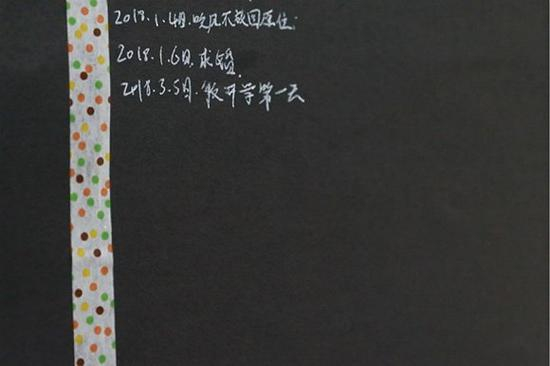 2018.1.4日.吹风不放回原位.
2018.1.6日.求婚.
2018.3.5日.牧开学第一天